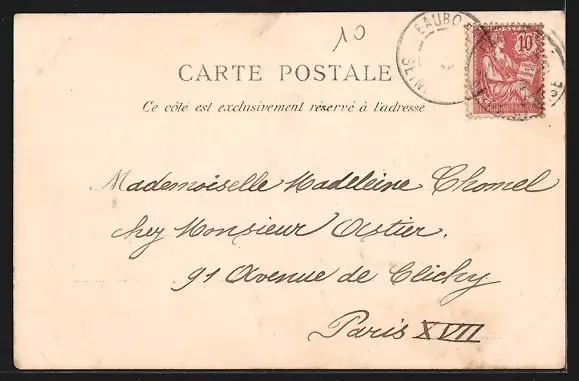 10
EAUBO
SEINE
POSTES
10
CARTE POSTALE
Ce côté est exclusivement réservé à l'adresse
Mademoiselle Madeleine Chomel
chez Monsieur Astier.
91 Avenue de Clichy
Paris XVII